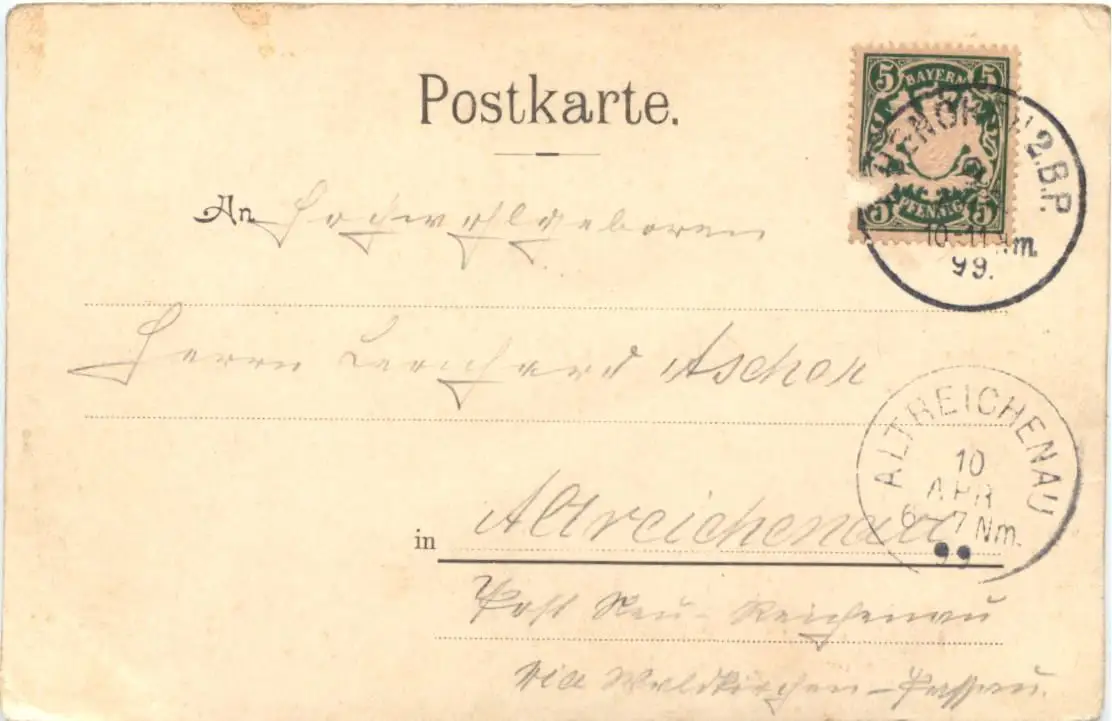 Postkarte.
5 BAYERN 5
5 PFENNIG 5
2.B.P.
10-11 Nm.
99.
An Hochwohlgeboren
Herrn Leonhard Ascher
ALTREICHENAU
10
APR
6-7 Nm.
99
in Altreichenau
Post Neu-Reichenau
via Waldkirchen-Passau.